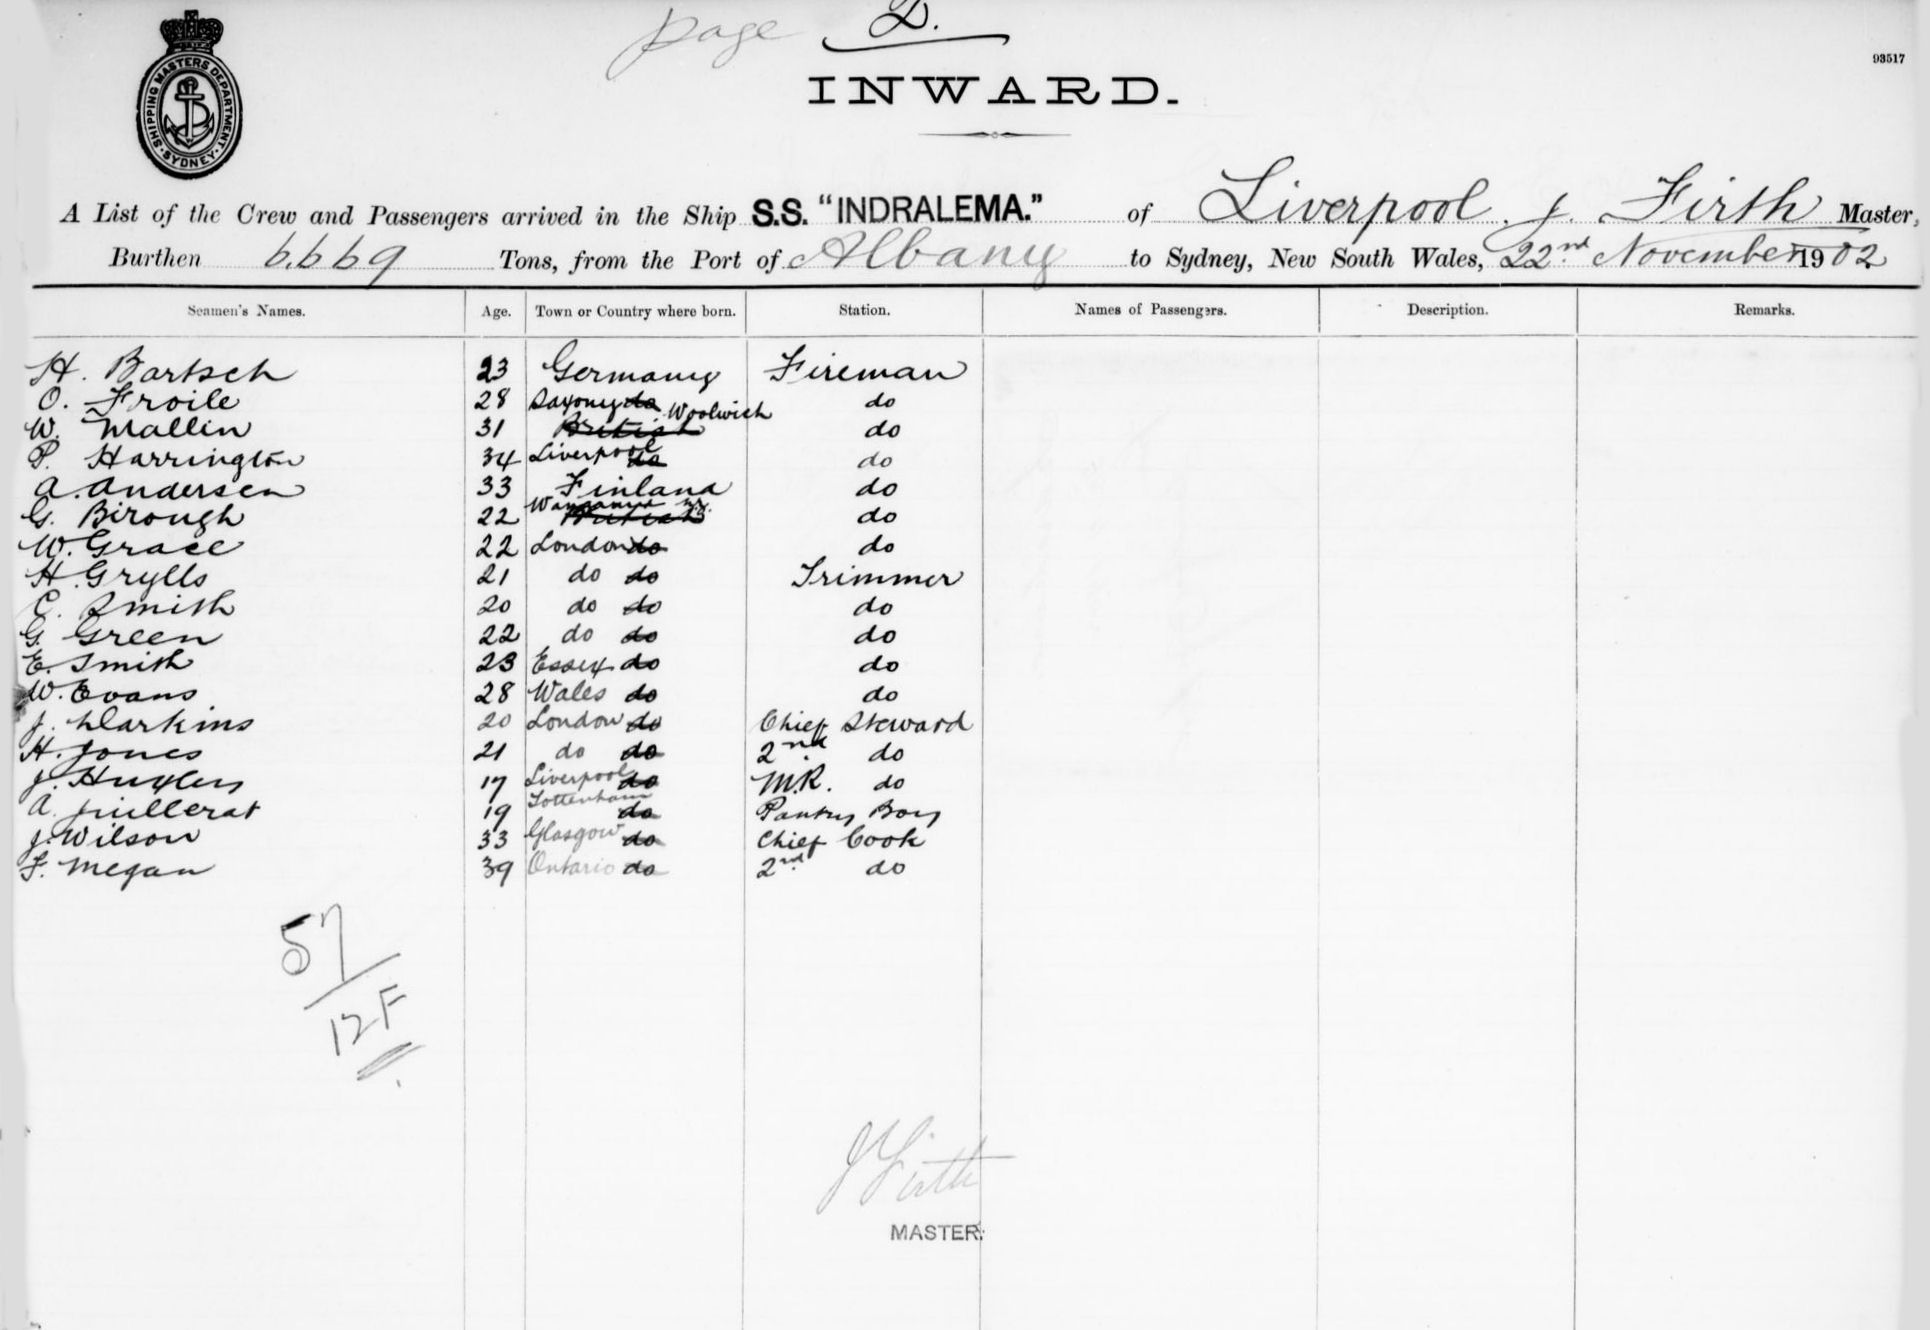 page 2.
93517
SHIPPING MASTERS DEPARTMENT. SYDNEY.
INWARD.
A List of the Crew and Passengers arrived in the Ship S.S. "INDRALEMA." of Liverpool. J. Firth Master,
Burthen 6,669 Tons, from the Port of Albany to Sydney, New South Wales, 22nd November 1902
Seamen's Names. Age. Town or Country where born. Station. Names of Passengers. Description. Remarks.
H. Bartsch 23 Germany Fireman
O. Froile 28 Saxony do do
W. Mallin 31 British Woolwich do
P. Harrington 34 Liverpool do do
A. Andersen 33 Finland do
G. Birough 22 Wanganui N.Z. British do
W. Grace 22 London do do
H. Grylls 21 do do Trimmer
C. Smith 20 do do do
G. Green 22 do do do
E. Smith 23 Essex do do
W. Evans 28 Wales do do
J. Darkins 20 London do Chief Steward
H. Jones 21 do do 2nd do
J. 17 Liverpool do M.R. do
A. Juillerat 19 Tottenham do Pantry Boy
J. Wilson 33 Glasgow do Chief Cook
F. Megan 39 Ontario do 2nd do
57
12F
J Firth
MASTER.